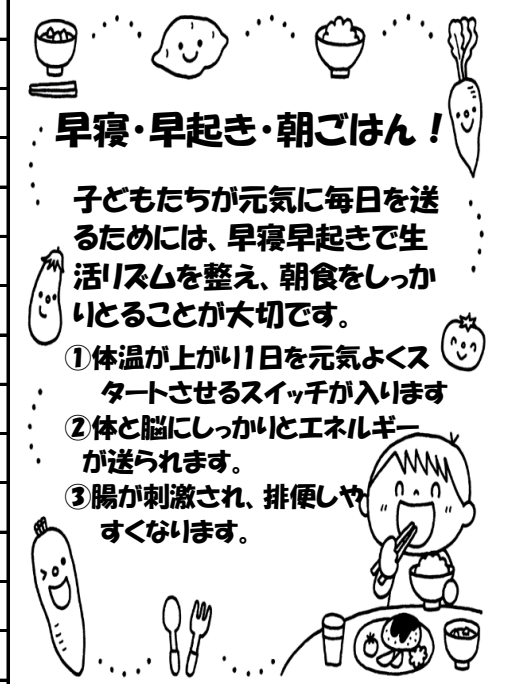 早寝・早起き・朝ごはん！
子どもたちが元気に毎日を送
るためには、早寝早起きで生
活リズムを整え、朝食をしっか
りとることが大切です。
①体温が上がり1日を元気よくス
タートさせるスイッチが入ります
②体と脳にしっかりとエネルギー
が送られます。
③腸が刺激され、排便しや
すくなります。